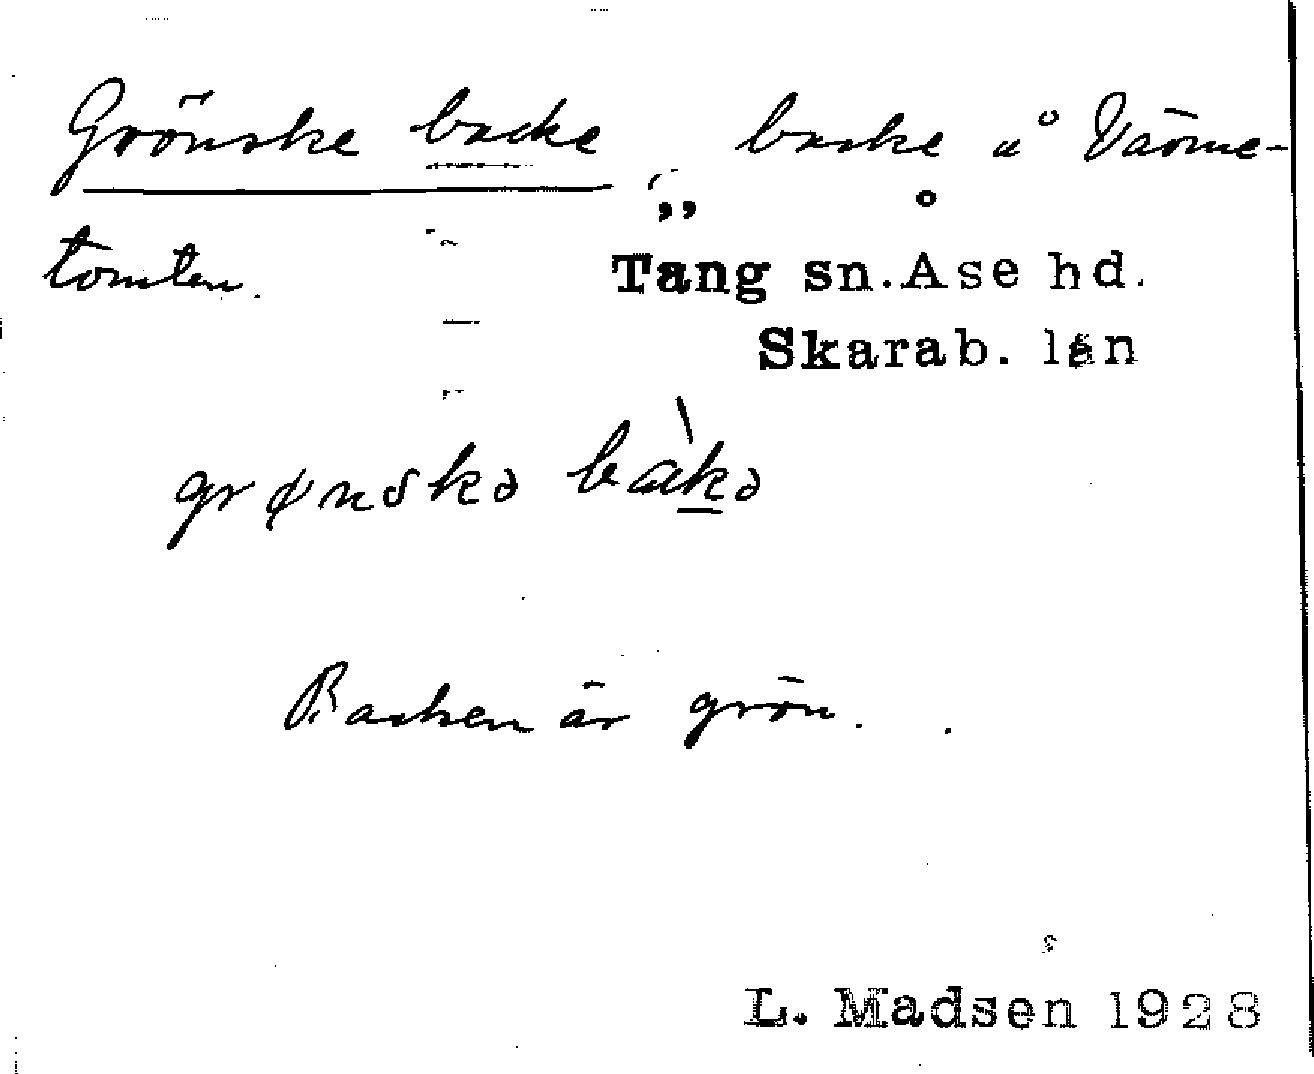 Grönske backe, backe å Värme-
tomten.
Täng sn. Åse hd.
Skarab. län
grønskə bàkə
Backen är grön.
L. Madsen 1928